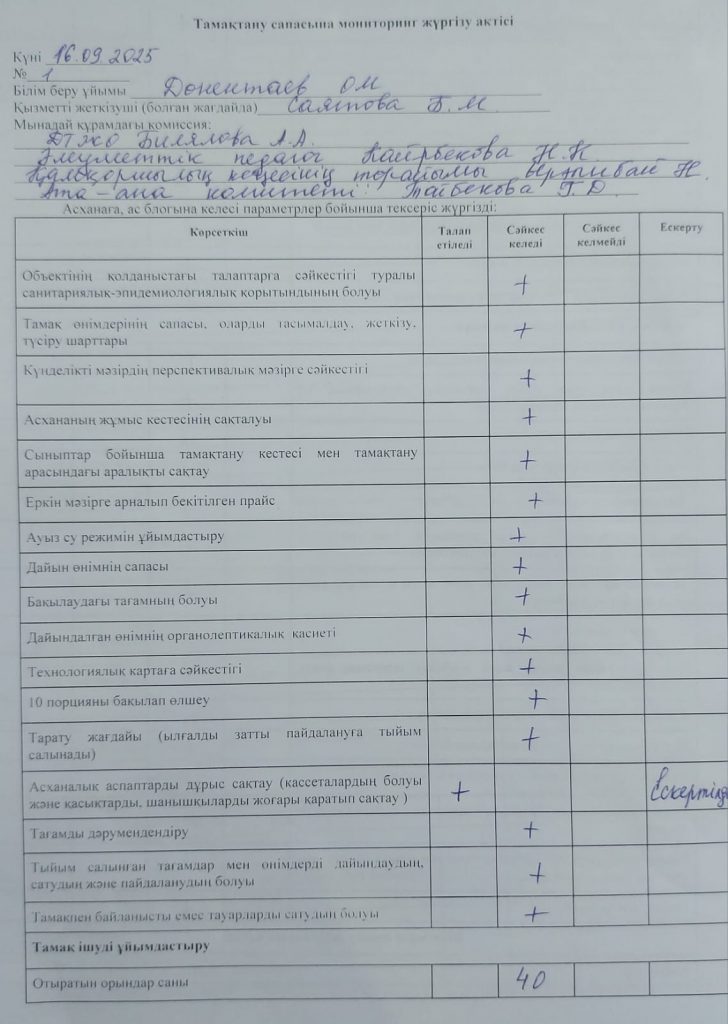 Тамақтану сапасына мониторинг жүргізу актісі
Күні 16.09.2025
№ 1
Білім беру ұйымы Донентаев ОМ
Қызметті жеткізуші (болған жағдайда) Саятова Б.М.
Мынадай құрамдағы комиссия:
ДТЖО Билялова А.А.
Әлеуметтік педагог Каирбекова Н.К
Қамқоршылық кеңесінің төрайымы Н.
Ата-ана комитеті: Тайбекова Г.Д.
Асханаға, ас блогына келесі параметрлер бойынша тексеріс жүргізді:
Көрсеткіш Талап етіледі Сәйкес келеді Сәйкес келмейді Ескерту
Объектінің қолданыстағы талаптарға сәйкестігі туралы
санитариялық-эпидемиологиялық қорытындының болуы +
Тамақ өнімдерінің сапасы, оларды тасымалдау, жеткізу,
түсіру шарттары +
Күнделікті мәзірдің перспективалық мәзірге сәйкестігі +
Асхананың жұмыс кестесінің сақталуы +
Сыныптар бойынша тамақтану кестесі мен тамақтану
арасындағы аралықты сақтау +
Еркін мәзірге арналып бекітілген прайс +
Ауыз су режимін ұйымдастыру +
Дайын өнімнің сапасы +
Бақылаудағы тағамның болуы +
Дайындалған өнімнің органолептикалық қасиеті +
Технологиялық картаға сәйкестігі +
10 порцияны бақылап өлшеу +
Тарату жағдайы (ылғалды затты пайдалануға тыйым
салынады) +
Асханалық аспаптарды дұрыс сақтау (кассеталардың болуы
және қасықтарды, шанышқыларды жоғары қаратып сақтау ) + Ескертілд
Тағамды дәрумендендіру +
Тыйым салынған тағамдар мен өнімдерді дайындаудың,
сатудың және пайдаланудың болуы +
Тамақпен байланысты емес тауарларды сатудың болуы +
Тамақ ішуді ұйымдастыру
Отыратын орындар саны 40